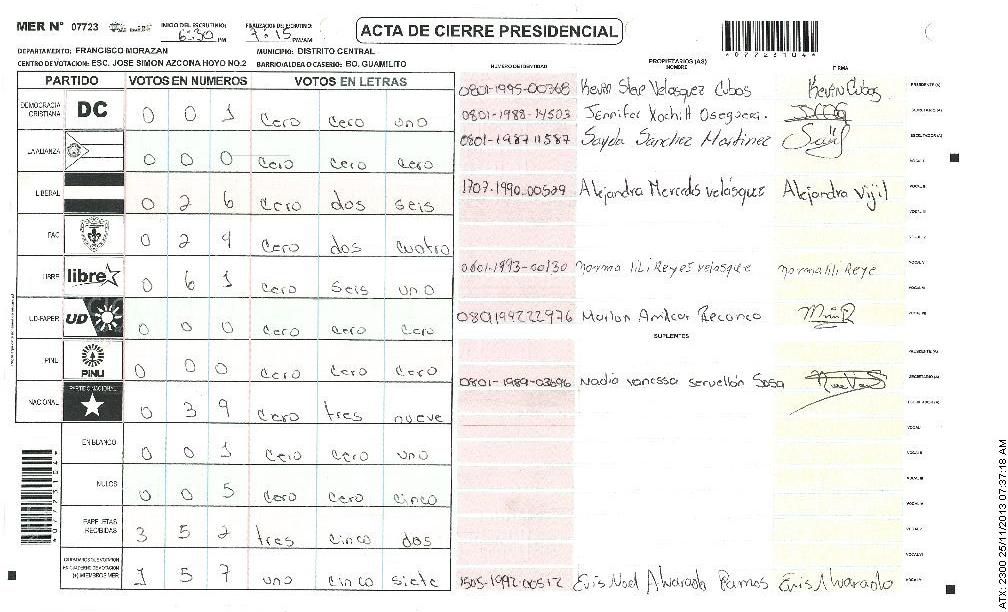 MER N° 07723
INICIO DEL ESCRUTINIO: 6:30 PM
FINALIZACION DEL ESCRUTINIO: 7:15 PM/AM
ACTA DE CIERRE PRESIDENCIAL
*07723104*
DEPARTAMENTO: FRANCISCO MORAZAN
MUNICIPIO: DISTRITO CENTRAL
CENTRO DE VOTACION: ESC. JOSE SIMON AZCONA HOYO NO.2 BARRIO/ALDEA O CASERIO: BO. GUAMILITO
PARTIDO VOTOS EN NUMEROS VOTOS EN LETRAS
DEMOCRACIA CRISTIANA DC 0 0 1 cero cero uno
LA ALIANZA 0 0 0 cero cero cero
LIBERAL 0 2 6 cero dos seis
PAC 0 2 4 cero dos cuatro
LIBRE libre 0 6 1 cero seis uno
UD-FAPER UD 0 0 0 cero cero cero
PINU PINU 0 0 0 cero cero cero
NACIONAL PARTIDO NACIONAL 0 3 9 cero tres nueve
EN BLANCO 0 0 1 cero cero uno
NULOS 0 0 5 cero cero cinco
PAPELETAS RECIBIDAS 3 5 2 tres cinco dos
CIUDADANOS DE VOTACION EN CUADERNO DE VOTACION (+) MIEMBROS MER 1 5 7 uno cinco siete
PROPIETARIOS (AS)
NUMERO DE IDENTIDAD NOMBRE FIRMA
0801-1995-00368 Kevin Velasquez Cubos Kevin Cubos PRESIDENTE (A)
0801-1988-14503 Jennifer Xochilt Oseguera. SECRETARIO (A)
0801-1987 11587 Sayda Sanchez Martinez ESCRUTADOR (A)
VOCAL I
1707-1990-00529 Alejandra Mercedes velásquez Alejandra Vijil VOCAL II
VOCAL III
VOCAL IV
0801-1993-00130 norma lili Reyes velasque norma lili Reye VOCAL V
VOCAL VI
080199222976 Marlon Amilcar Reconco VOCAL VII
SUPLENTES
PRESIDENTE (A)
0801-1989-03696 nadia vanessa servellón Sosa SECRETARIO (A)
ESCRUTADOR (A)
VOCAL I
VOCAL II
VOCAL III
VOCAL IV
VOCAL V
VOCAL VI
1505-1992-00512 Evis Noel Alvarado Ramos Evis Alvarado
*07723104*
ATX-2300 25/11/2013 07:37:18 AM